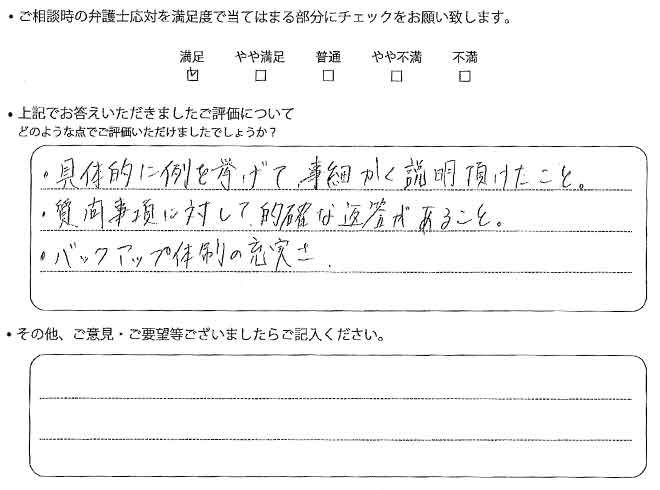 ・ご相談時の弁護士応対を満足度で当てはまる部分にチェックをお願い致します。
満足 やや満足 普通 やや不満 不満
☑ □ □ □ □
・上記でお答えいただきましたご評価について
どのような点でご評価いただけましたでしょうか？
・具体的に例を挙げて、事細かく説明頂けたこと。
・質問事項に対して、的確な返答があること。
・バックアップ体制の充実さ.
・その他、ご意見・ご要望等ございましたらご記入ください。